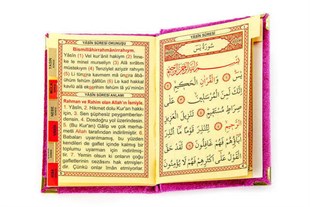 YÂSİN SÛRESİ OKUNUŞU
Bismillâhirrahmânirrahıym.
Yâsiin (1) Vel kur'ânil hakiym (2) İnne-
ke le minel murseliyn (3) Alâ sırâtım
müstekıym (4) Tenziylel aziyzir rahıym
(5) Li tünzira kavmem mâ ünzira âbâ-
ühüm fehüm ğâfilûn (6) Lekad hakkal
kavlü alâ ekserihim fehüm lâ yü'minûn
YÂSİN SÛRESİ ANLAMI
Rahman ve Rahim olan Allah'ın İsmiyle.
1. Yâsîn, 2. Hikmet dolu Kur'an hakkı
için, 3. Sen şüphesiz peygamberler-
densin. 4. Dosdoğru yol üzerindesin.
5. (Bu Kur'an) Gâlip ve çok merha-
metli Allah tarafından indirilmiştir. 6.
Babaları uyarılmamış, bu yüzden
kendileri de gaflet içinde olan bir
toplumu uyarman için indirilmiştir.
7. Yemin olsun ki onların çoğu
gafletlerinin cezasını hak etmişler-
dir. Çünkü onlar iman etmiyorlar.
YÂSİN SÛRESİ
سُورَةُ يٰسٓ
بِسْمِ اللّٰهِ الرَّحْمٰنِ الرَّحِيمِ
يٰسٓ وَالْقُرْاٰنِ الْحَكِيمِ اِنَّكَ
لَمِنَ الْمُرْسَلِينَ عَلٰى
صِرَاطٍ مُسْتَقِيمٍ تَنْزِيلَ الْعَزِيزِ
الرَّحِيمِ لِتُنْذِرَ قَوْمًا مَٓا اُنْذِرَ
اٰبَٓاؤُهُمْ فَهُمْ غَافِلُونَ لَقَدْ حَقَّ
الْقَوْلُ عَلٰٓى اَكْثَرِهِمْ فَهُمْ لَا يُؤْمِنُونَ